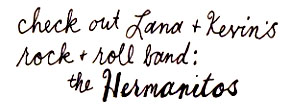 check out Lana + Kevin's
rock + roll band:
the Hermanitos